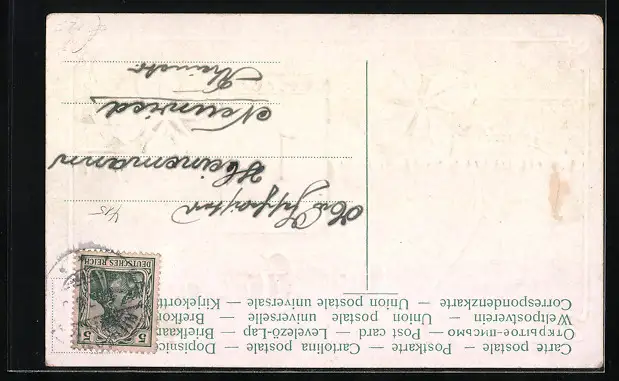 Carte postale — Postkarte — Cartolina postale — Dopisnice
Открытое-письмо — Post card — Levelező-Lap — Briefkaar
Weltpostverein — Union postale universelle — Brefkor
Correspondenzkarte — Union postale universale — Kirjekortti
5 5
DEUTSCHES REICH
Heinemann
Neuwied